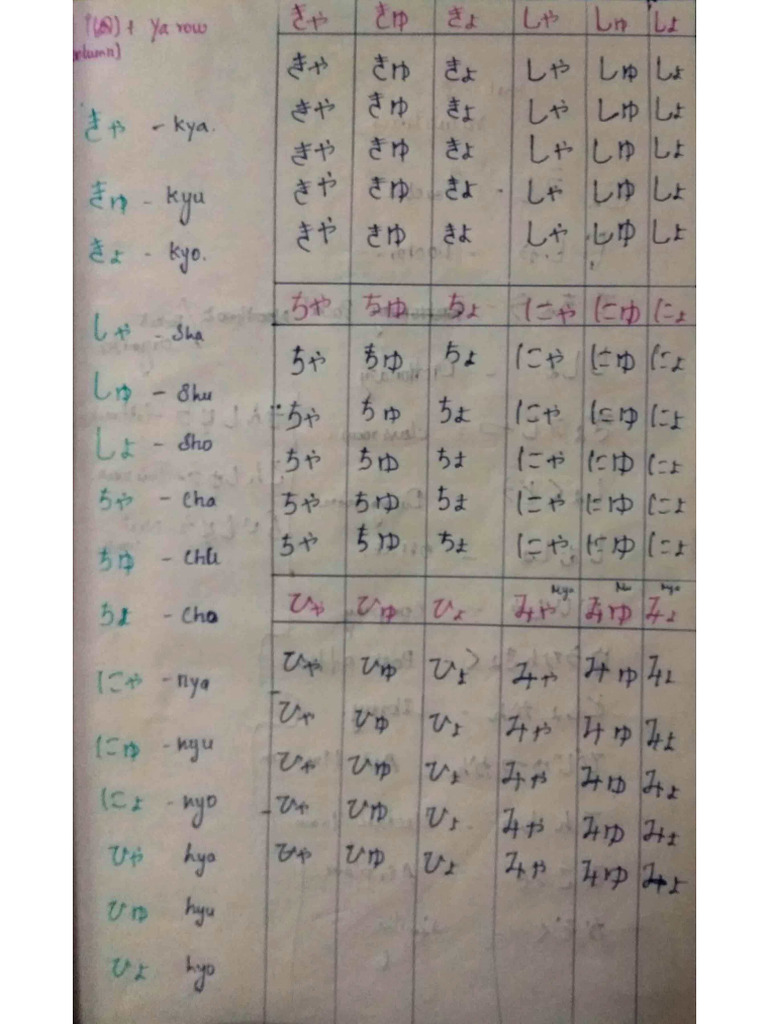 + Ya row
きゃ - kya.
きゅ - kyu
きょ - kyo.
しゃ - sha
しゅ - shu
しょ - sho
ちゃ - cha
ちゅ - chu
ちょ - cho
にゃ - nya
にゅ - nyu
にょ - nyo
ひゃ hya
ひゅ hyu
ひょ hyo
きゃ きゅ きょ しゃ しゅ しょ
きゃ きゅ きょ しゃ しゅ しょ
きゃ きゅ きょ しゃ しゅ しょ
きゃ きゅ きょ しゃ しゅ しょ
きゃ きゅ きょ しゃ しゅ しょ
きゃ きゅ きょ しゃ しゅ しょ
ちゃ ちゅ ちょ にゃ にゅ にょ
ちゃ ちゅ ちょ にゃ にゅ にょ
ちゃ ちゅ ちょ にゃ にゅ にょ
ちゃ ちゅ ちょ にゃ にゅ にょ
ちゃ ちゅ ちょ にゃ にゅ にょ
ちゃ ちゅ ちょ にゃ にゅ にょ
ひゃ ひゅ ひょ みゃ みゅ みょ
ひゃ ひゅ ひょ みゃ みゅ みょ
ひゃ ひゅ ひょ みゃ みゅ みょ
ひゃ ひゅ ひょ みゃ みゅ みょ
ひゃ ひゅ ひょ みゃ みゅ みょ
ひゃ ひゅ ひょ みゃ みゅ みょ